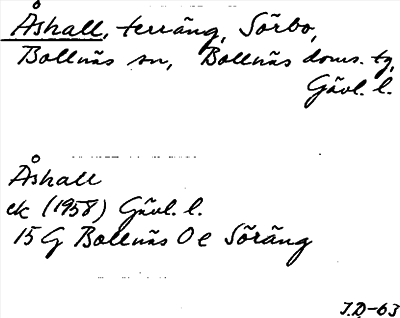 Åshall, terräng, Sörbo,
Bollnäs sn, Bollnäs doms. tg,
Gävl. l.
Åshall
ek (1958) Gävl. l.
15 G Bollnäs 0 e Söräng
J.D-63